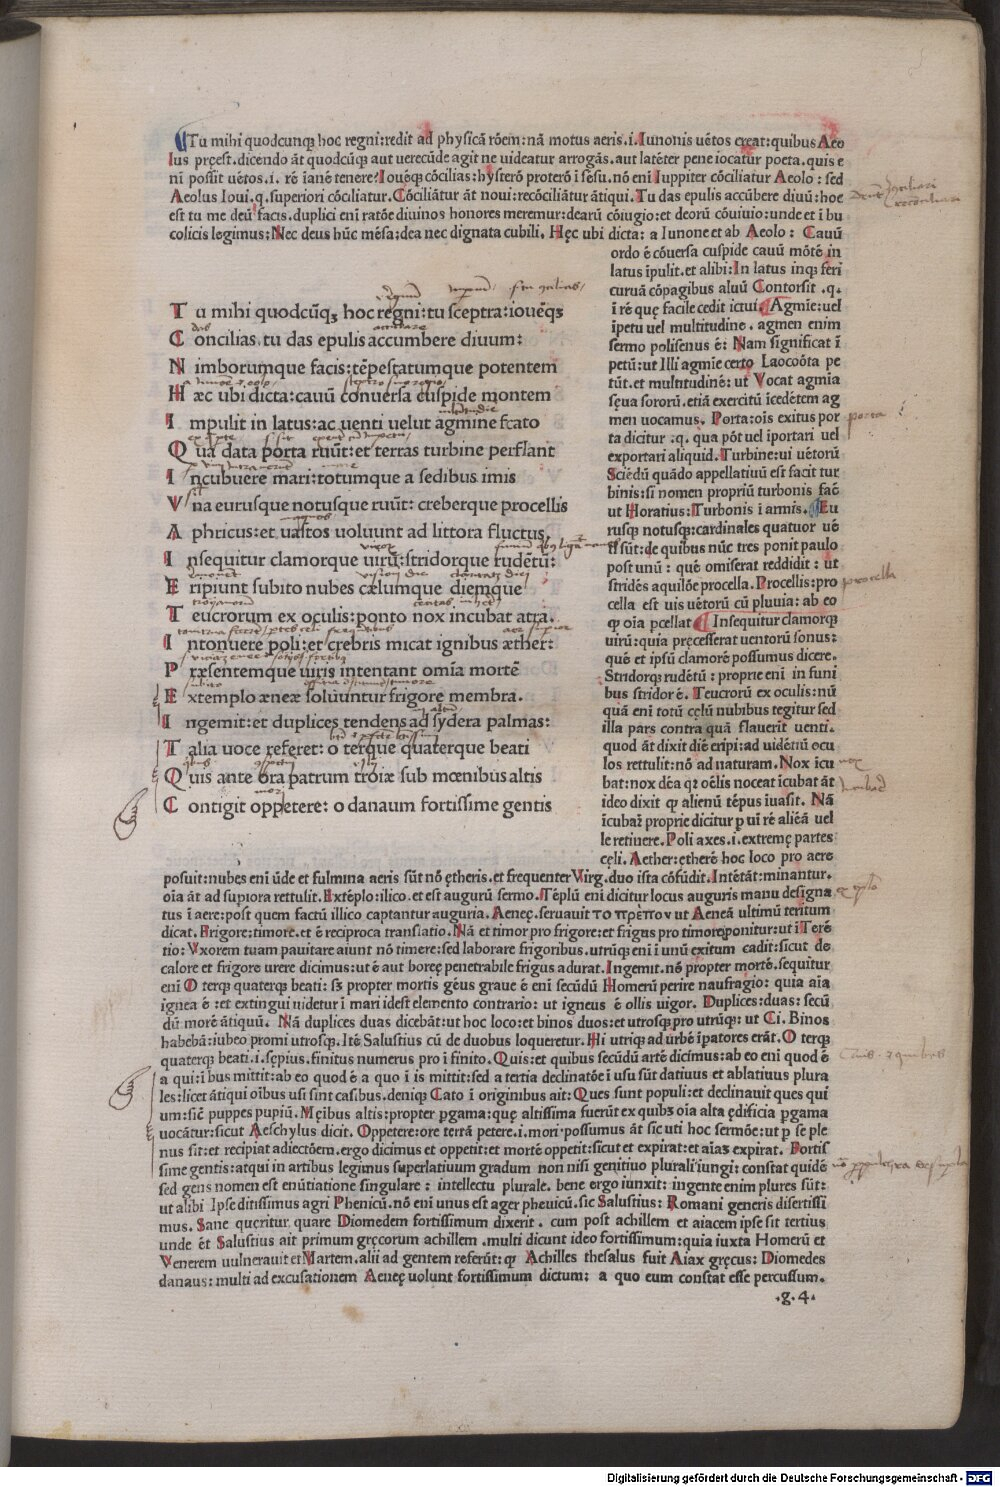 Tu mihi quodcunqꝫ hoc regni:redit ad physicā rōem:nā motus aeris.i.Iunonis uētos creat:quibus Aeo
lus pręest.dicendo āt quodcūqꝫ aut uerecūde agit ne uideatur arrogās.aut latēter pene iocatur poeta.quis e
ni possit uētos.i. rē ianē tenere?Iouēqꝫ cōcilias:hysterō proterō i sēsu.nō enī Iuppiter cōciliatur Aeolo: sed
Aeolus Ioui.q.superiori cōciliatur.Cōciliātur āt noui:recōciliātur ātiqui.Tu das epulis accūbere diuū:hoc
est tu me deū facis.duplici enī ratōe diuinos honores meremur:dearū cōiugio:et deorū cōuiuio:unde et ī bu
colicis legimus:Nec deus hūc mēsa:dea nec dignata cubili. Hęc ubi dicta: a Iunone et ab Aeolo: Cauū
ordo ē cōuersa cuspide cauū mōtē in
latus īpulit.et alibi:In latus inqꝫ feri
curuā cōpagibus aluū Contorsit .q.
ī rē quę facile cedit ictui.Agmīe:uel
īpetu uel multitudine. agmen enim
sermo polisenus ē: Nam significat ī
petū:ut Illi agmīe certo Laocoōta pe
tūt.et multitudinē: ut Vocat agmīa
sęua sororū.etiā exercitū īcedētem ag
men uocamus. Porta:oīs exitus por
ta dicitur .q. qua pōt uel iportari uel
exportari aliquid.Turbine:ui uētorū
Sciēdū quādo appellatiuū est facit tur
binis:si nomen propriū turbonis fac̄
ut Horatius:Turbonis ī armis. Eu
rusqꝫ notusqꝫ:cardinales quatuor uē
ti sūt:de quibus nūc tres ponit paulo
post unū: quē omiserat reddidit: ut
stridēs aquilōe procella.Procellis:pro
cella est uis uētorū cū pluuia: ab eo
ꝙ oīa pcellat Insequitur clamorqꝫ
uirū:quia pręcesserat uentorū sonus:
quē et ipsū clamorē possumus dicere.
Stridorqꝫ rudētū: proprie enī in funi
bus stridor ē. Teucrorū ex oculis:nū
quā enī totū cęlū nubibus tegitur sed
illa pars contra quā flauerit uenti.
quod āt dixit diē eripi:ad uidētiū ocu
los rettulit:nō ad naturam.Nox īcu
bat:nox dēa qꝛ oēlis noceat īcubat āt
ideo dixit ꝙ alienū tēpus iuasit. Nā
īcubaꝛ proprie dicitur p ui rē aliēā uel
le retinere.Poli axes.i.extremę partes
cęli. Aether:etherē hoc loco pro aere
Tu mihi quodcūqꝫ hoc regni:tu sceptra:iouēqꝫ
Concilias.tu das epulis accumbere diuum:
Nimborumque facis:tēpestatumque potentem
Hæc ubi dicta:cauū conuersa cuspide montem
Impulit in latus:ac uenti uelut agmine fcato
Qua data porta ruūt:et terras turbine perflant
Incubuere mari:totumque a sedibus imis
Vna eurusque notusque ruūt: creberque procellis
Aphricus:et uastos uoluunt ad littora fluctus.
Insequitur clamorque uirū:stridorque rudētū:
Eripiunt subito nubes cælumque diemque
Teucrorum ex oculis:ponto nox incubat atra.
Intonuere poli:et crebris micat ignibus æther:
Præsentemque uiris intentant omīa mortē
Extemplo æneæ soluuntur frigore membra.
Ingemit:et duplices tendens ad sydera palmas:
Talia uoce referet: o terque quaterque beati
Quis ante ora patrum troiæ sub mœnibus altis
Contigit oppetere: o danaum fortissime gentis
posuit:nubes enī ūde et fulmina aeris sūt nō ętheris.et frequenter Virg.duo ista cōfūdit.Intētāt:minantur.
oīa āt ad supīora rettulit.Extēplo:ilico.et est augurū sermo.Tēplū enī dicitur locus auguris manu designa
tus ī aere:post quem factū illico captantur auguria. Aeneę.seruauit το πρέπον ut Aeneā ultimū teritum
dicat.Frigore:timore.et ē reciproca translatio.Nā et timor pro frigore:et frigus pro timore ponitur:ut ī Terē
tio: Vxorem tuam pauitare aiunt nō timere:sed laborare frigoribus.utrūqꝫ enī ī unū exitum cadit:sicut de
calore et frigore urere dicimus:ut ē aut boreę penetrabile frigus adurat.Ingemit.nō propter mortē.sequitur
enī O terqꝫ quaterqꝫ beati: sꝫ propter mortis gēus graue ē enī secūdū Homerū perire naufragio: quia aīa
ignea ē :et extingui uidetur ī mari idest elemento contrario: ut igneus ē ollis uigor. Duplices:duas: secū
dū morē ātiquū. Nā duplices duas dicebāt:ut hoc loco:et binos duos:et utrosqꝫ pro utrūqꝫ: ut Ci. Binos
habebā:iubeo promi utrosqꝫ.Itē Salustius cū de duobus loqueretur.Hi utriqꝫ ad urbē īpatores erāt.O terqꝫ
quaterqꝫ beati.i.sępius.finitus numerus pro ī finito.Quis:et quibus secūdū artē dicimus:ab eo enī quod ē
a qui:ī bus mittit:ab eo quod ē a quo ī is mittit:sed a tertia declinatōe ī usu sūt datiuus et ablatiuus plura
les:licet ātiqui oībus usi sint casibus.deniqꝫ Cato ī originibus ait:Ques sunt populi:et declinauit ques qui
um:sic̄ puppes pupiū.Męībus altis:propter pgama:quę altissima fuerūt ex quibꝫ oīa alta ędificia pgama
uocātur:sicut Aeschylus dicit. Oppetere:ore terrā petere.i.mori possumus āt sic uti hoc sermōe:ut p se ple
nus sit:et recipiat adiectōem.ergo dicimus et oppetit:et mortē oppetit:sicut et expirat:et aīaꝫ expirat. Fortis
sime gentis:atqui in artibus legimus superlatiuum gradum non nisi genitiuo plurali iungi: constat quidē
sed gens nomen est enūtiatione singulare: intellectu plurale. bene ergo iunxit: ingente enim plures sūt:
ut alibi Ipse ditissimus agri Phenicū.nō enī unus est ager pheuicū.sic Salustius: Romani generis disertissi
mus. Sane quęritur quare Diomedem fortissimum dixerit. cum post achillem et aiacem ipse sit tertius
unde ēt Salustius ait primum gręcorum achillem .multi dicunt ideo fortissimum:quia iuxta Homerū et
Venerem uulnerauit et Martem.alii ad gentem referūt: ꝙ Achilles thesalus fuit Aiax gręcus: Diomedes
danaus: multi ad excusationem Aeneę uolunt fortissimum dictum: a quo eum constat esse percussum.
.g.4.
porta
procella
nox
Digitalisierung gefördert durch die Deutsche Forschungsgemeinschaft - DFG